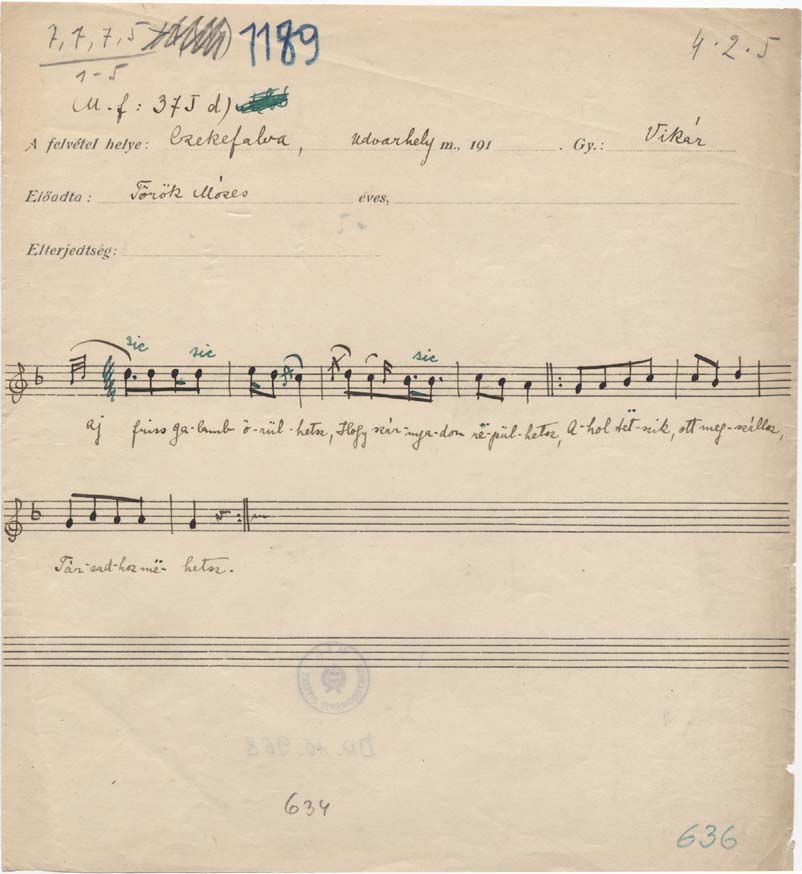 7, 7, 7, 5 1189 4.2.5
1-5
M.f: 375 d)
A felvétel helye: Czekefalva, Udvarhely m., 191 . Gy.: Vikár
Előadta: Török Mózes éves,
Elterjedtség:
sic sic sic
Aj friss ga-lamb ö-rül-hetsz, Hogy szár-nya-don rë-pül-hetsz, A-hol tët-szik, ott meg-szállsz,
Tár-sad-hoz më-hetsz.
634
636